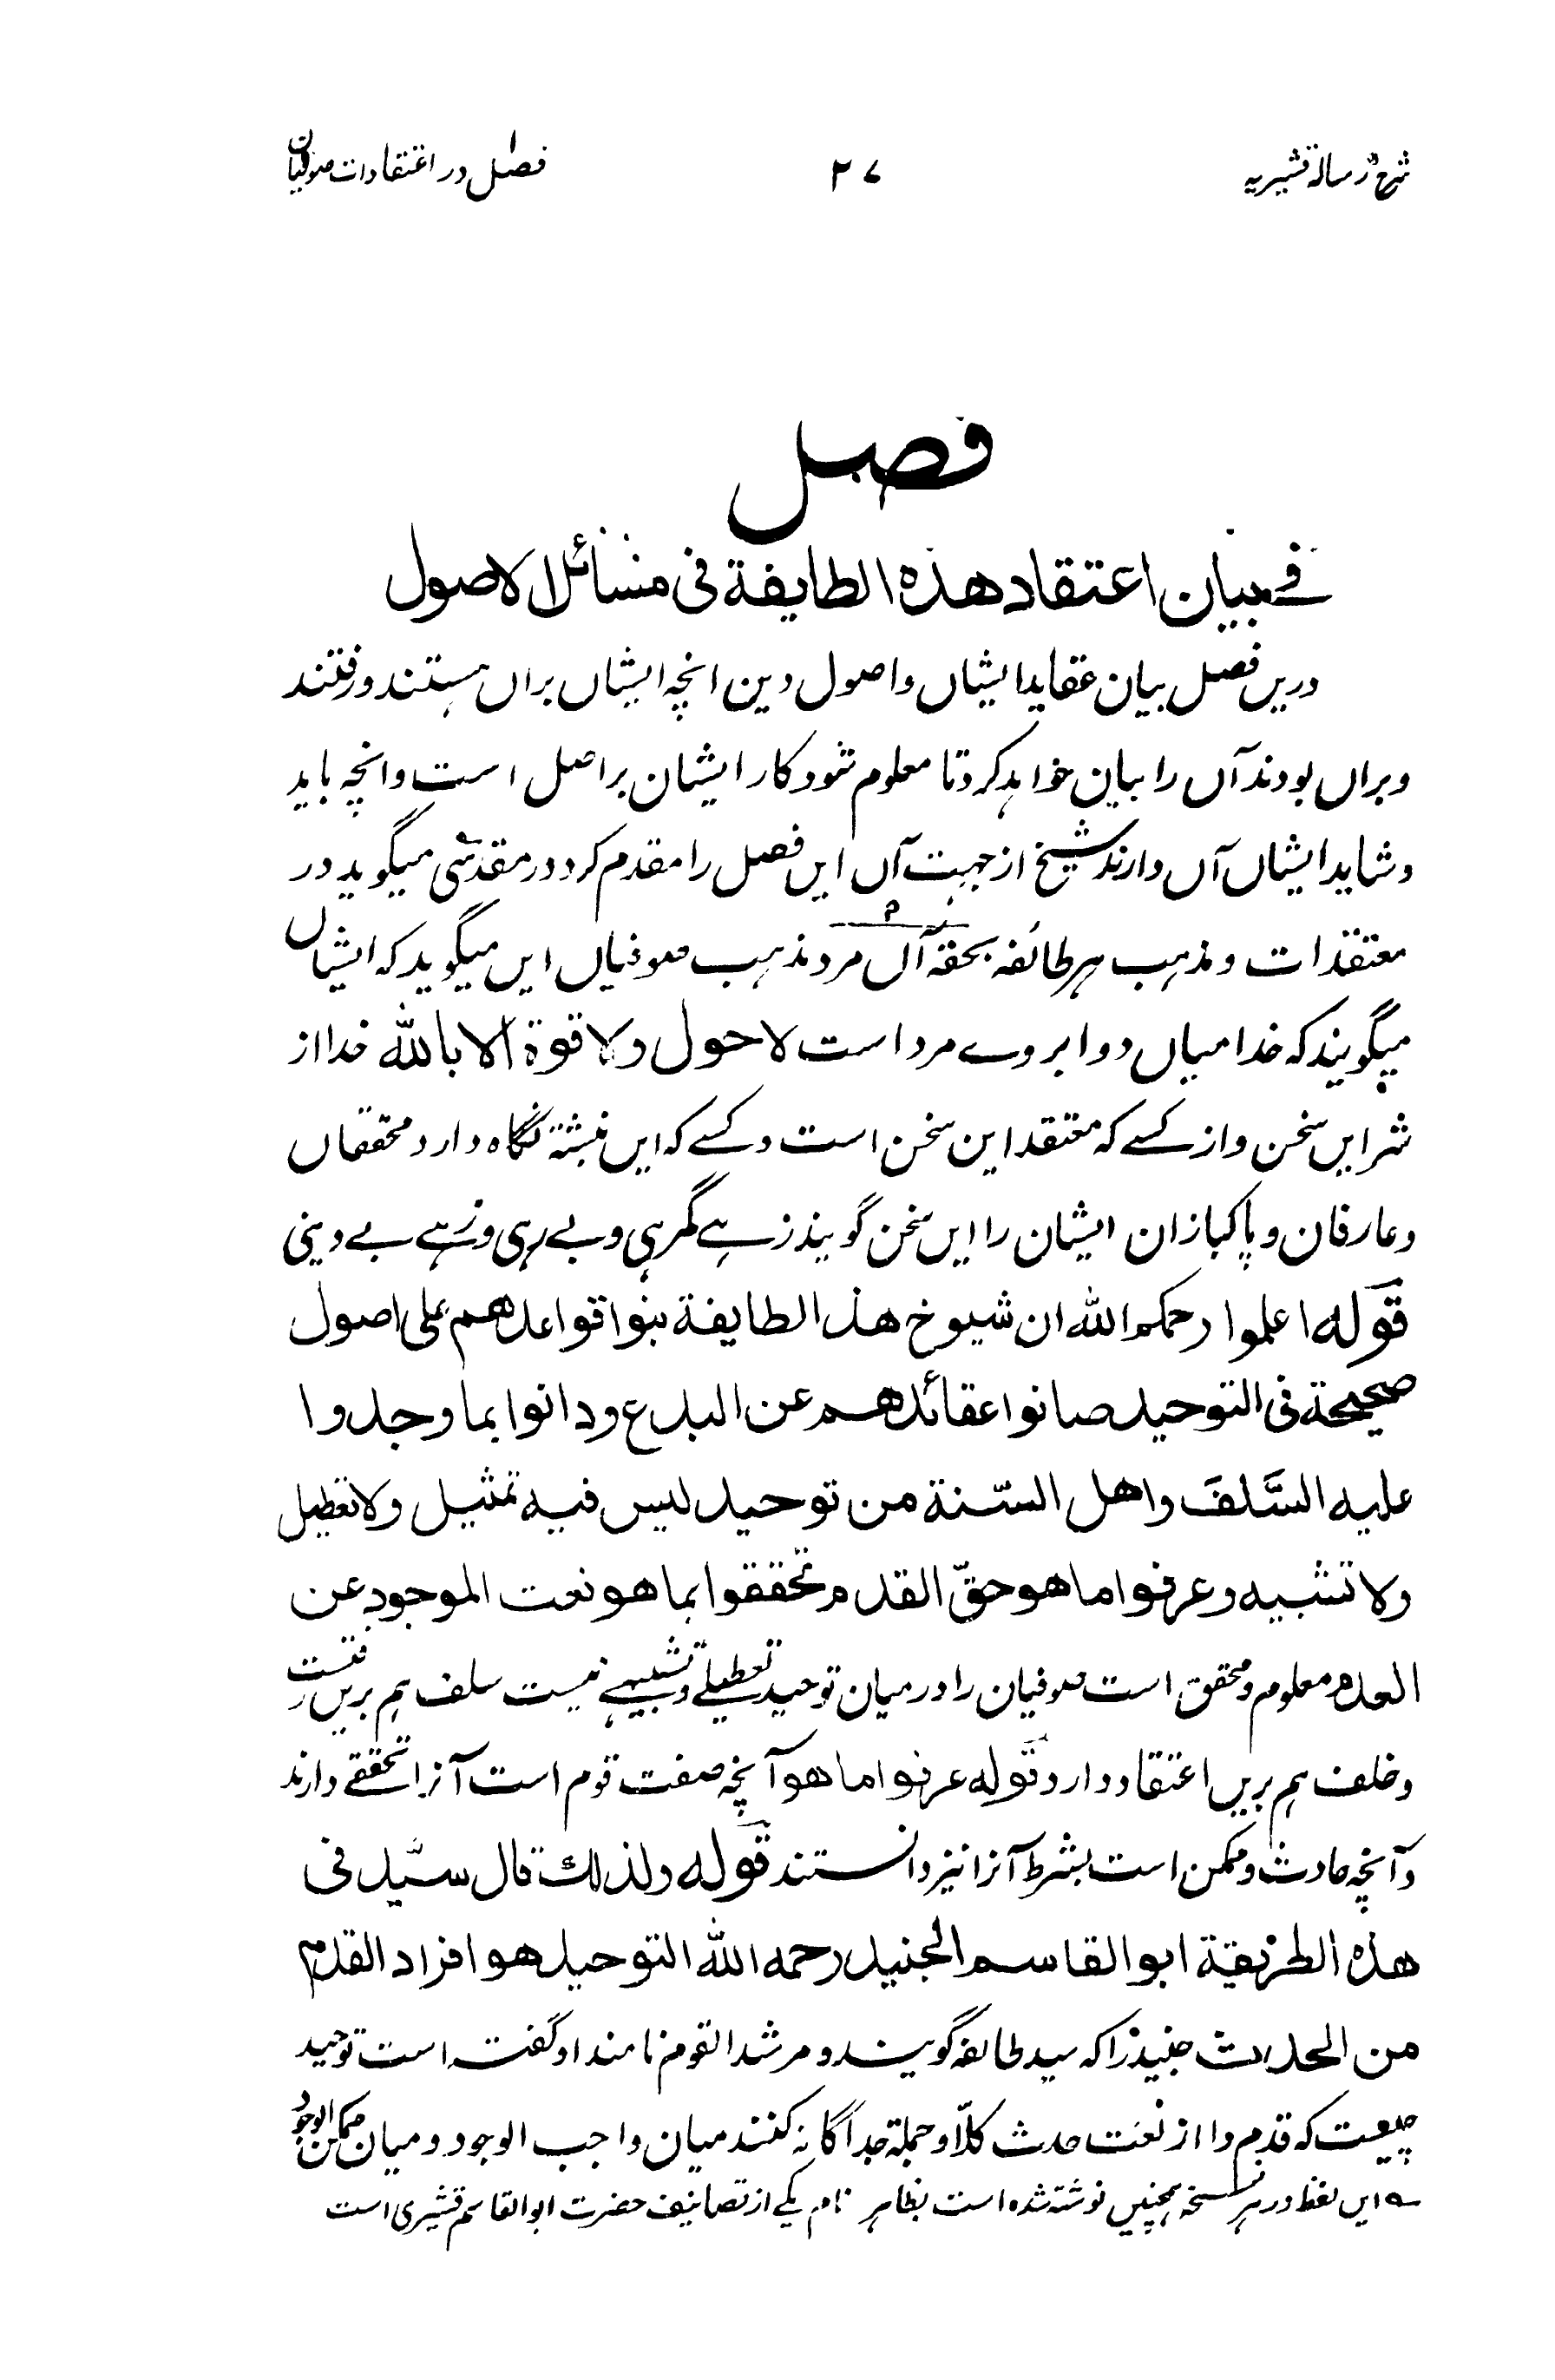 شرح رسالۀ قشیریہ ۲۷ فصل در اعتقادات صوفیان
فصل
فے بیان اعتقاد هذه الطایفة فی مسائل الاصول
دریں فصل بیان عقاید ایشاں و اصول دین انچہ ایشاں براں ہستند و رفتند
و براں بودند آں را بیان خواہد کرد تا معلوم شود کار ایشان بر اصل است و انچہ باید
و شاید ایشاں آں دارند شیخ از جہت آں ایں فصل را مقدم کرد در مقدسی میگوید در
معتقدات و مذہب ہر طائفہ بحقہ آں مرد مذہب صوفیاں ایں میگوید کہ ایشاں
میگویند کہ خدا میاں دو ابروے مرد است لاحول ولا قوة الا بالله خدا از
شر ایں سخن و از کسے کہ معتقد این سخن است و کسے کہ ایں نبشتہ نگاہ دارد محققاں
و عارفان و پاکبازان ایشان را ایں سخن گویند زہے گمرہی و بے رہی و زہے بے دینی
قوله اعلموا رحمکم الله ان شیوخ هذ الطایفة بنوا قواعدهم علی اصول
صحیحة فی التوحید صانوا عقائدهم عن البدع ودانوا بما وجدوا
علیه السَّلفَ واهل السّنة من توحید لیس فیه تمثیل ولا تعطیل
ولا تشبیه وعرفوا ما هو حقّ القدم وتحققوا بما هو نعت الموجود عن
العدم معلوم و محقق است صوفیان را در میان توحید تعطیلے و تشبیہے نیست سلف ہم بریں رفتست
و خلف ہم بریں اعتقاد دارد قوله عرفوا ما هو آنچہ صفت قوم است آنرا تحققے دارند
و آنچہ حادث و ممکن است بشرط آنرا نیز دانستند قوله ولذلك قال سیّد فی
هذه الطریقة ابو القاسم الجنید رحمه الله التوحید هو افراد القدم
من الحدث جنید را کہ سید طائفہ گویند و مرشد القوم نامند او گفتہ است توحید
چیست کہ قدم را از نعت حدث کلّاً و جملةً جداگانہ کنند میان واجب الوجود و میان ممکن الوجود
ـه ایں لفظ در ہر نسخہ ہمچنیں نوشتہ شدہ است بظاہر نام یکے از تصانیف حضرت ابو القاسم قشیری است